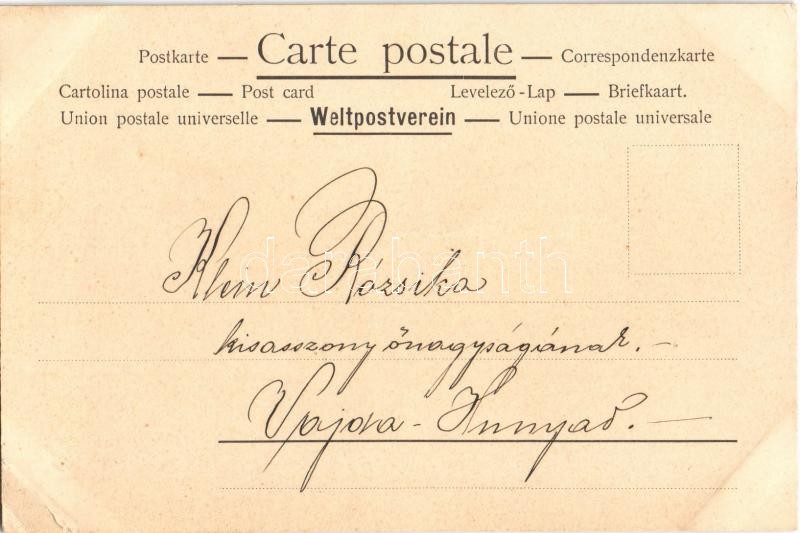 Postkarte — Carte postale — Correspondenzkarte
Cartolina postale — Post card Levelező-Lap — Briefkaart.
Union postale universelle — Weltpostverein — Unione postale universale
Klein Rózsika
darabanth
kisasszony őnagyságának. —
Vajda-Hunyad. —